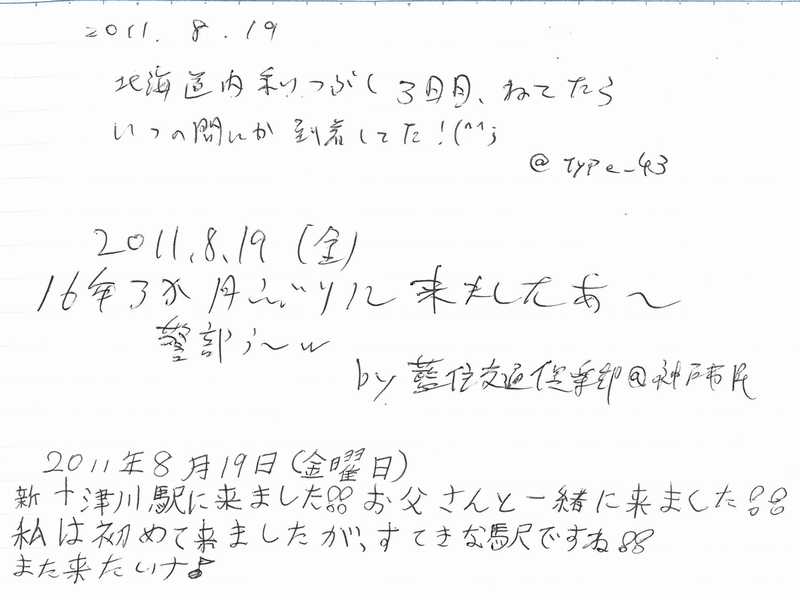 2011. 8. 19
北海道内乗りつぶし 3日目、ねてたら
いつの間にか到着してた!(^^;
@ type_43
2011.8.19 (金)
16年3か月ぶりに来ましたあ〜
警部う〜w
by 藍住交通倶楽部@神戸市民
2011年8月19日(金曜日)
新十津川駅に来ました!! お父さんと一緒に来ました!!
私は初めて来ましたが、すてきな駅ですね!!
また来たいナ♪